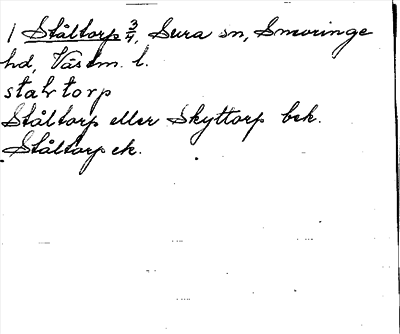 1 Ståltorp 3/4, Sura sn, Snevringe
hd, Västm. l.
stal₂torp
Ståltorp eller Skyttorp bek.
Ståltorp ek.